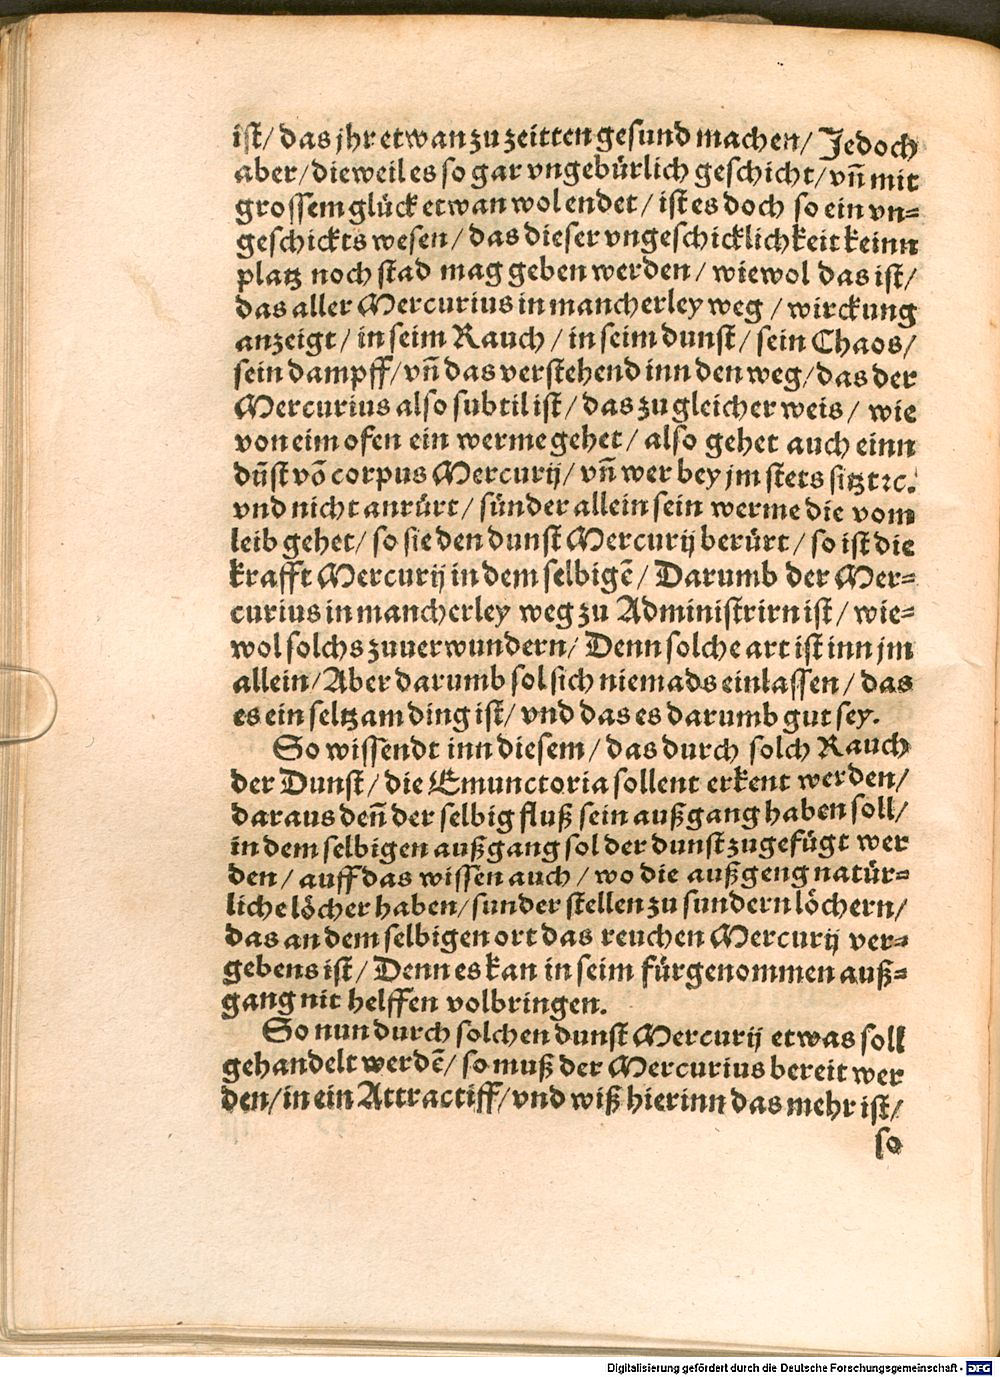 ist/ das jhr etwan zu zeitten gesund machen/ Jedoch
aber/ dieweil es so gar vngebürlich geschicht/ vñ mit
grossem glück etwan wol endet/ ist es doch so ein vn-
geschickts wesen/ das dieser vngeschicklichkeit keinn
platz noch stad mag geben werden/ wiewol das ist/
das aller Mercurius in mancherley weg/ wirckung
anzeigt/ in seim Rauch/ in seim dunst/ sein Chaos/
sein dampff/ vñ das verstehend inn den weg/ das der
Mercurius also subtil ist/ das zu gleicher weis/ wie
von eim ofen ein werme gehet/ also gehet auch einn
dũst võ corpus Mercurij/ vñ wer bey jm stets sitzt ꝛc.
vnd nicht anrürt/ sünder allein sein werme die vom
leib gehet/ so sie den dunst Mercurij berürt/ so ist die
krafft Mercurij in dem selbigẽ/ Darumb der Mer-
curius in mancherley weg zu Administrirn ist/ wie-
wol solchs zuuerwundern/ Denn solche art ist inn jm
allein/ Aber darumb sol sich niemads einlassen/ das
es ein seltzam ding ist/ vnd das es darumb gut sey.
So wissendt inn diesem/ das durch solch Rauch
der Dunst/ die Emunctoria sollent erkent werden/
daraus deñ der selbig fluß sein außgang haben soll/
in dem selbigen außgang sol der dunst zugefügt wer
den/ auff das wissen auch/ wo die außgeng natür-
liche löcher haben/ sunder stellen zu sundern löchern/
das an dem selbigen ort das reuchen Mercurij ver-
gebens ist/ Denn es kan in seim fürgenommen auß-
gang nit helffen volbringen.
So nun durch solchen dunst Mercurij etwas soll
gehandelt werdẽ/ so muß der Mercurius bereit wer
den/ in ein Attractiff/ vnd wiß hierinn das mehr ist/
so
Digitalisierung gefördert durch die Deutsche Forschungsgemeinschaft - DFG